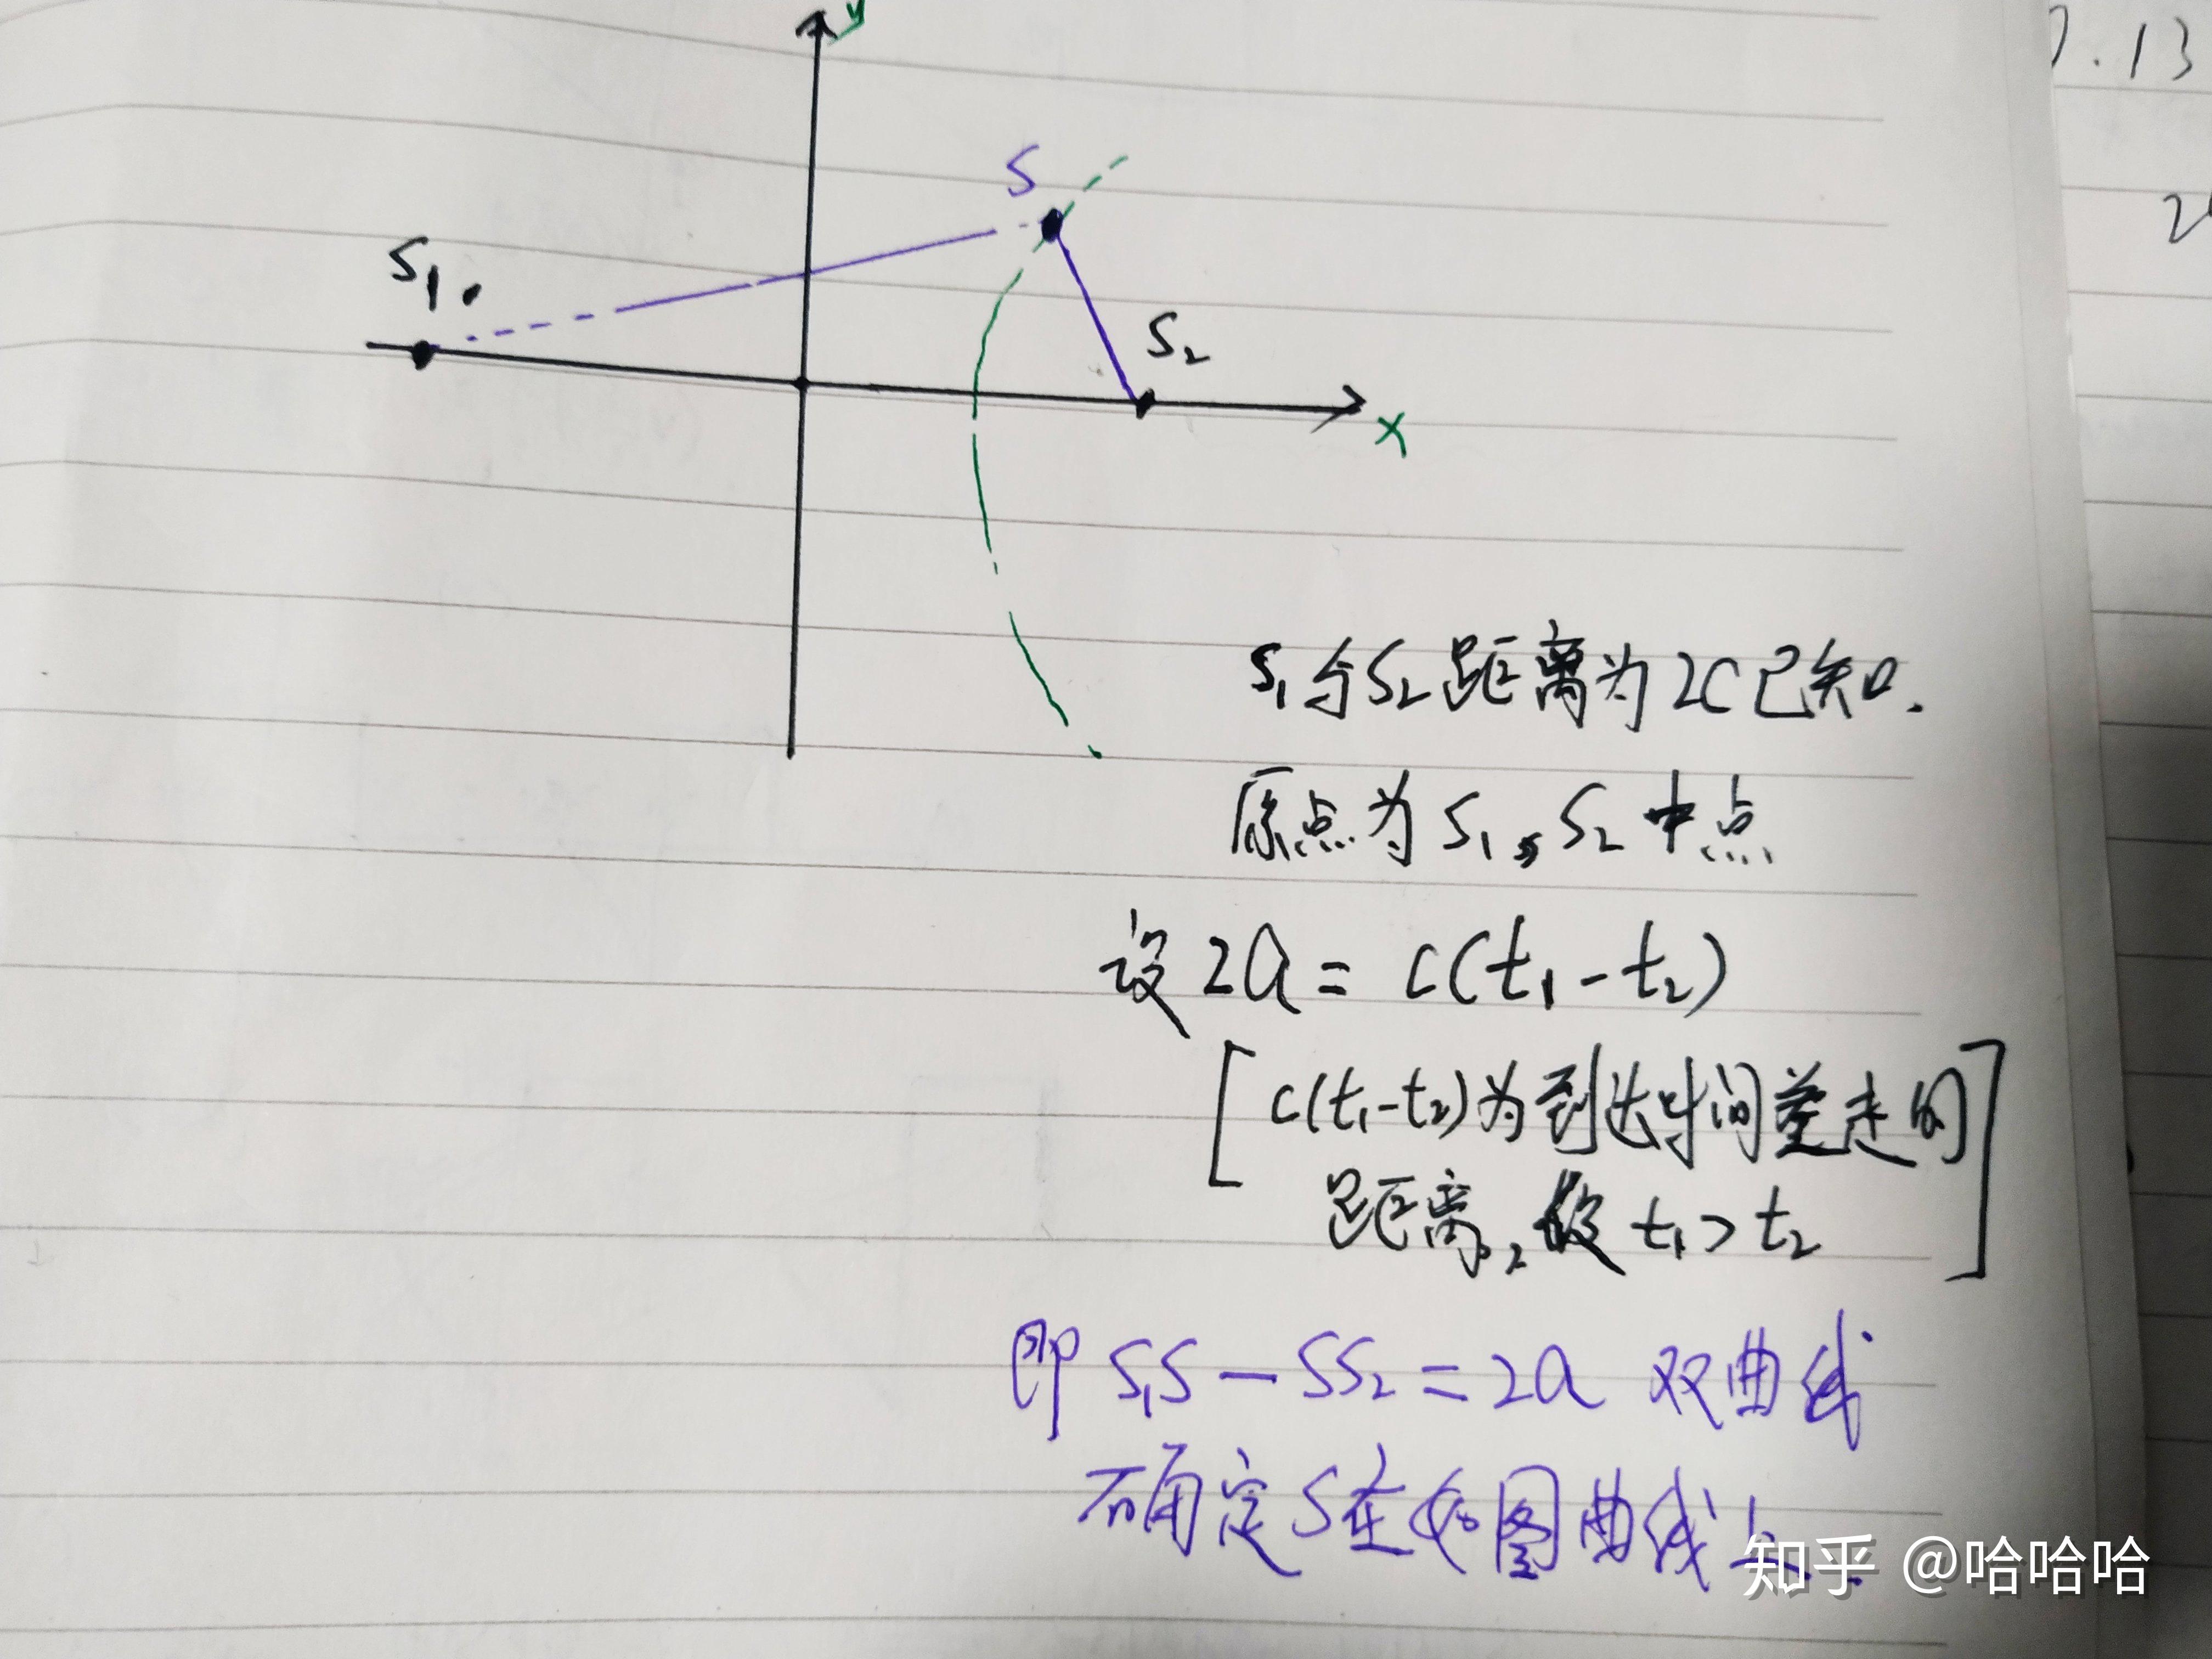 y
S
S₁
S₂
x
S₁与S₂距离为2C已知.
原点为S₁,S₂中点
设2a = c(t₁-t₂)
[c(t₁-t₂)为到达时间差走的
距离,设t₁>t₂]
即S₁S-SS₂=2a 双曲线
可确定S在如图曲线上.
知乎 @哈哈哈